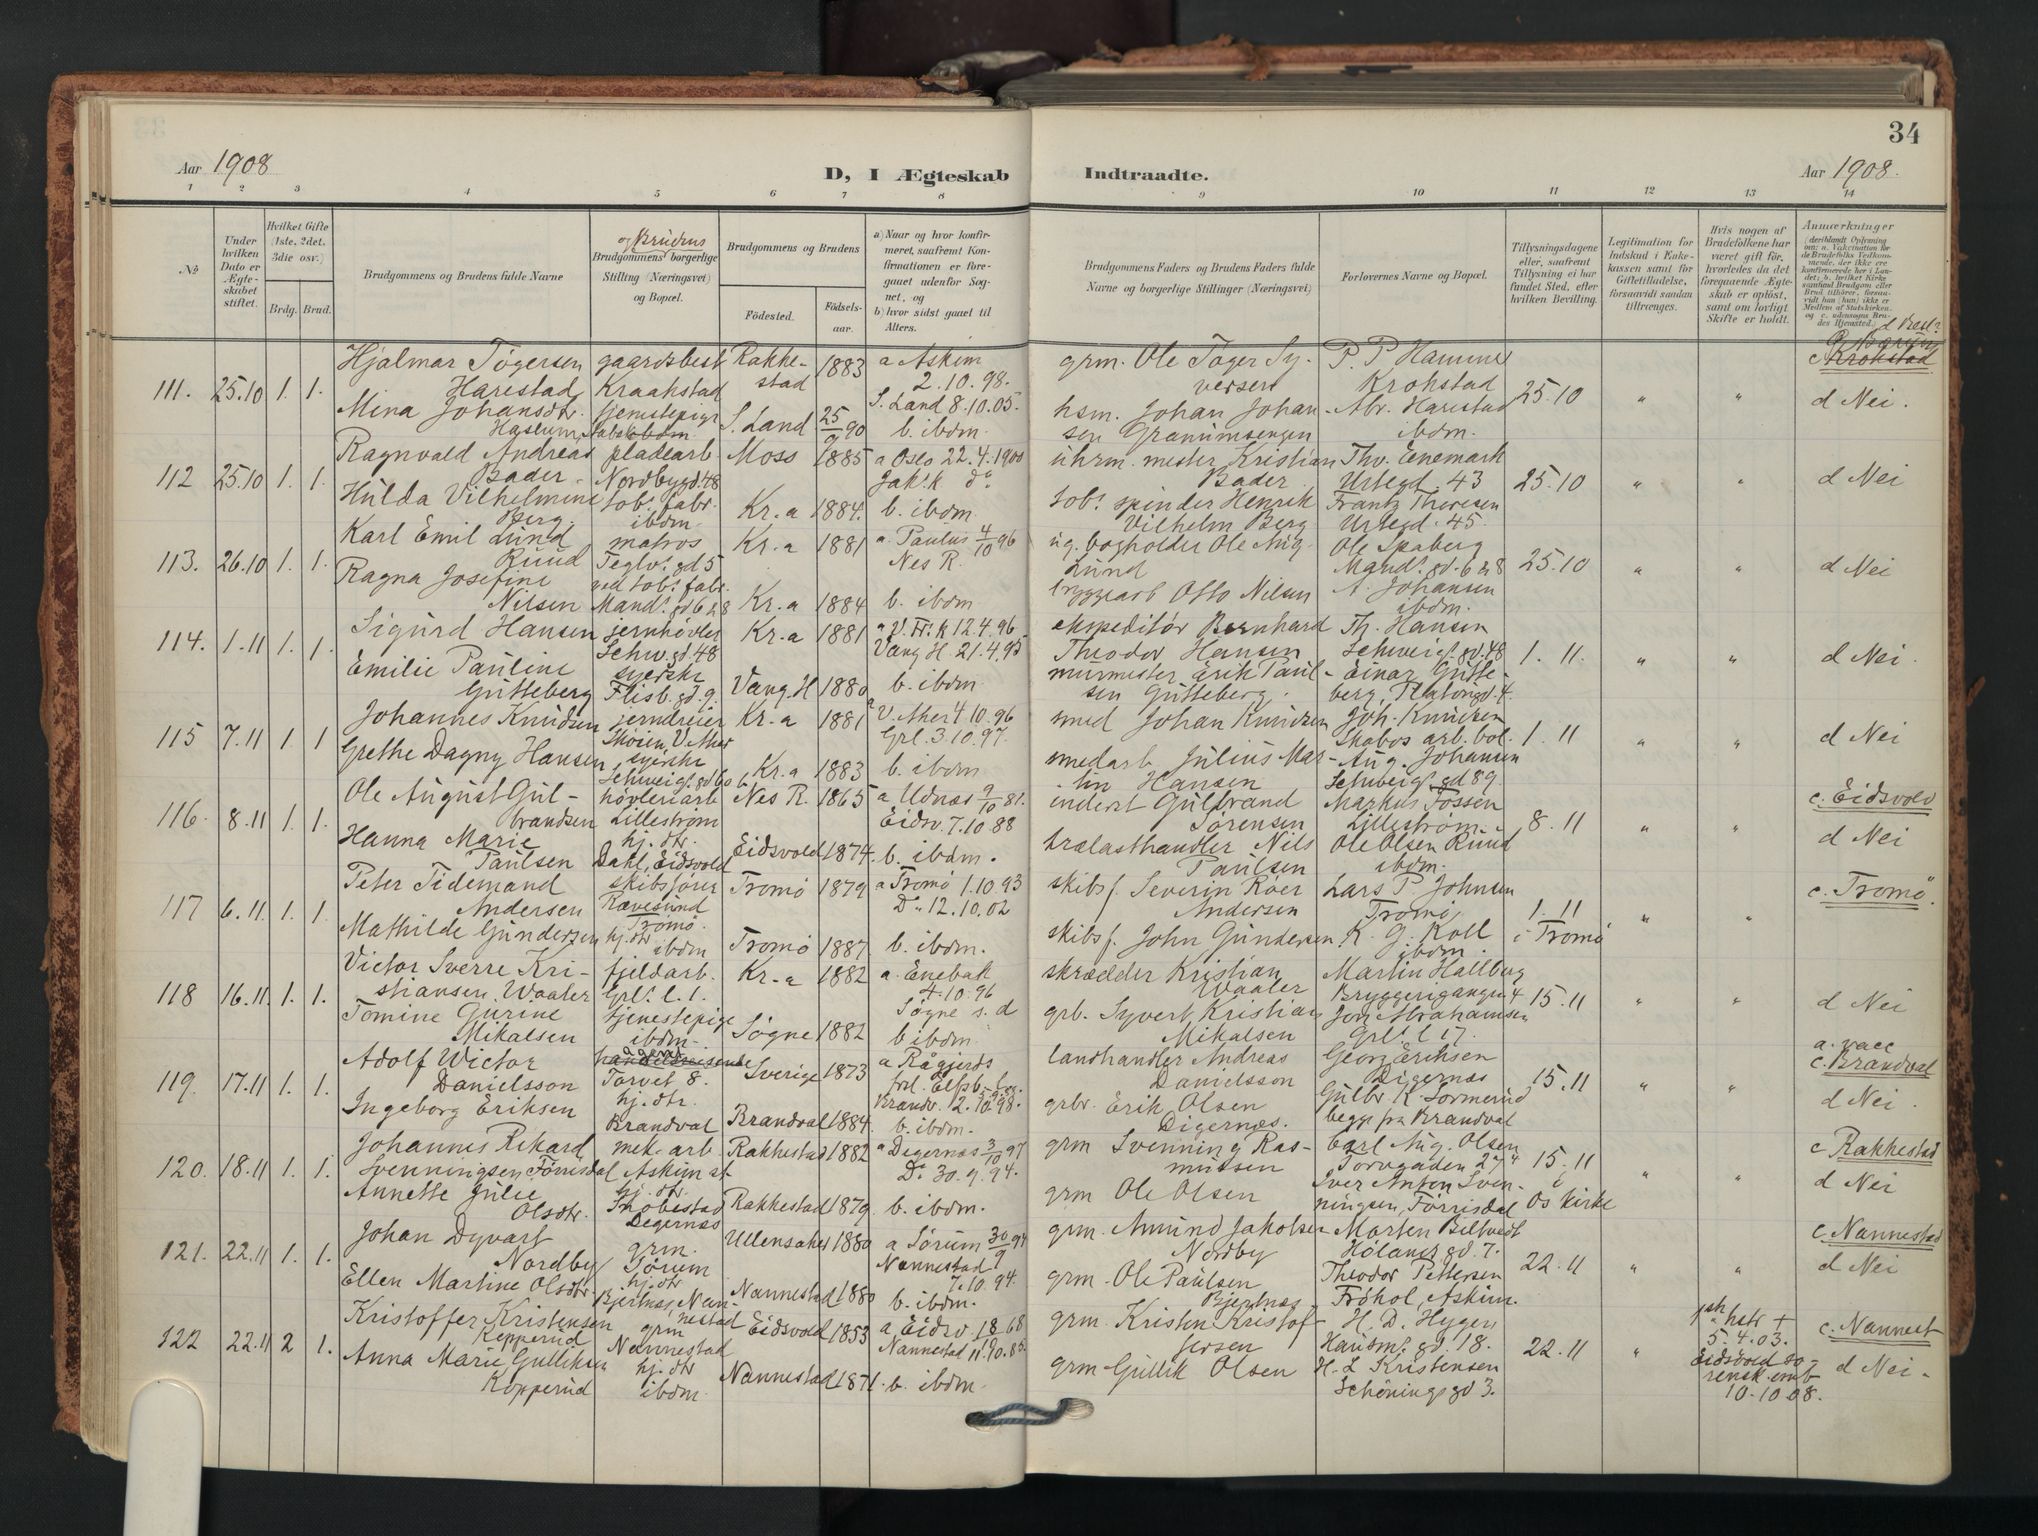 Aar 1908
D, I Ægteskab
Indtraadte.
34
Aar 1908.
1 2 3 4 5 6 7 8 9 10 11 12 13 14
No
Under hvilken Dato er Ægteskabet stiftet.
Hvilket Gifte (1ste, 2det, 3die osv.)
Brdg. Brud.
Brudgommens og Brudens fulde Navne
og Brudens
Brudgommens borgerlige Stilling (Næringsvei) og Bopæl.
Brudgommens og Brudens
Fødested.
Fødselsaar.
a) Naar og hvor konfirmeret, saafremt Konfirmationen er foregaaet udenfor Sognet, og
b) hvor sidst gaaet til Alters.
Brudgommens Faders og Brudens Faders fulde Navne og borgerlige Stillinger (Næringsvei)
Forlovernes Navne og Bopæl.
Tillysningsdagene eller, saafremt Tillysning ei har fundet Sted, efter hvilken Bevilling.
Legitimation for Indskud i Enkekassen samt for Giftetilladelse, forsaavidt saadan tiltrænges.
Hvis nogen af Brudefolkene har været gift før, hvorledes da det foregaaende Ægteskab er opløst, samt om lovligt Skifte er holdt.
Anmærkninger
111. 25.10 1. 1.
Hjalmar Tøgersen gaardsbest Rakke- 1883 a Askim
Harestad Kraakstad stad 2.10.98.
Mina Johansdtr. tjenestepige S. Land 25/9 90 S. Land 8.10.05.
Haslum, b. ibdm.
grm. Ole Tøger Sy- P. P. Hamme
versen Krohstad 25.10 " "
hsm. Johan Johan- Abr. Harestad d Nei.
sen Granumsengen ibdm.
c Krohstad
112 25.10 1. 1.
Ragnvald Andreas pladearb. Moss 1885 a Oslo 22.4.1900
Bader Nordbygd. 48 Jak.k do
Hulda Vilhelmine tob. fabr. Kr.a 1884. b. ibdm.
Berg. ibdm.
uhrm. mester Kristian Thv. Enemark
Bader. Urtegd. 43 25.10 " " d Nei
tob. spinder Henrik Frantz Thoresen
Vilhelm Berg Urtegd. 45.
113. 26.10 1. 1.
Karl Emil Lund matros Kr.a 1881 a. Paulus 4/10 96
Ruud Teglv. gd 5 Nes R.
Ragna Josefine ved tob. fabr.
Nilsen Mands. gd 6 & 8 Kr.a 1884 b. ibdm.
ug. bogholder Ole Aug. Ole Skaberg
Lund Mands. gd. 6 & 8 25.10 " " d Nei
bryggearb Otto Nilsen A. Johansen
ibdm.
114. 1.11 1. 1.
Sigurd Hansen jernhøvler Kr.a 1881 a V. Fr. k 12.4.96
Schw. gd. 48 Vang H. 21.4.95
Emilie Pauline syerske Vang H 1880 b. ibdm.
Gutteberg Flisb. gd. 9.
ekspeditør Bernhard Th. Hansen
Theodor Hansen Schweigs. gd. 48 1.11. " " d Nei.
murmester Erik Paul- Einar Gutte-
sen Gutteberg. berg, Platousgd. 4.
115 7.11 1. 1
Johannes Knudsen jerndreier Kr.a 1881 a V. Aker 4.10.96
Skøien, V. Aker Grl. 3.10.97.
Grethe Dagny Hansen syerske Kr.a 1883 b. ibdm.
Schweigs. gd 60 b
smed Johan Knudsen Joh. Knudsen
Skabos arb. bol. 1.11 " " d Nei
smedarb Julius Mar- Aug. Johansen
tin Hansen Schweigs. gd 89.
116. 8.11 1. 1.
Ole August Gul- høvleriarb Nes R. 1865 a Udnæs 9/10 81.
brandsen Lillestrøm Eidsv. 7.10.88
Hanna Marie hj. dtr. Eidsvold 1874. b. ibdm.
Paulsen Dahl, Eidsvold
inderst Gulbrand Markus Fossen c. Eidsvold
Sørensen Lillestrøm. 8.11 " "
trælasthandler Nils Ole Olsen Ruud d Nei
Paulsen ibdm.
117 6.11 1. 1.
Peter Tidemand skibsfører Tromø 1879 a Tromø 1.10.93
Andersen Rævesund Do 12.10.02
Tromø.
Mathilde Gundersen hj. dtr ibdm Tromø 1887. b. ibdm.
skibsf. Severin Röer Lars P. Johnsen c. Tromø.
Andersen Tromø 1.11 " "
skibsf. John Gundersen K. G. Koll i Tromø
ibdm.
118 16.11. 1. 1.
Victor Sverre Kri- fjeldarb. Kr.a 1882 a. Enebak
stiansen Waaler Grls. l. 1. 4.10.96
Tomine Gurine tjenestepige Søgne 1882 Søgne s. d
Mikalsen ibdm. b ibdm.
skrædder Kristian Martin Hallberg
Waaler Bryggerigangen 4 15.11 " " d Nei
grb. Syvert Kristian Jon Abrahamsen
Mikalsen Grls. l 17.
119. 17.11 1. 1.
Adolf Wictor handelsreisende agent Sverige 1873 a Råggjerds
Danielsson Torvet 8. frl. Elfsb. l.
Ingeborg Eriksen hj. dtr. Brandval 1884. Brandv. 2.10.98.
Brandval b. ibdm.
landhandler Andreas Georg Eriksen a. vacc
Danielsson Digernæs 15.11 " " c. Brandval
grbr. Erik Olsen Gulbr. K. Sormerud d Nei.
Digernæs. begge fra Brandval
120. 18.11 1. 1.
Johannes Rikard mek. arb. Rakkestad 1882 a Degernæs 3/10 97
Svenningsen Førrisdal Askim st Do 30.9.94.
Annette Julie hj. dtr. Rakkestad 1879. b. ibdm.
Olsdtr. Digernæs
grm Svenning Ras- Carl Aug. Olsen c Rakkestad
mussen Torvgaden 27 4 15.11 " "
grm Ole Olsen Iver Anton Sven- i d Nei
ningsen, Førrisdal Os Kirke
121. 22.11 1. 1.
Johan Dyvart grm. Ullensaker 1880 a Sørum 30/9 94
Nordby Sørum Nannestad
Ellen Martine Olsdtr. hj. dtr Nannestad 1880 7.10.94.
Bjertnæs, Nan- b. ibdm.
nestad
grm. Amund Jakobsen Morten Biltvedt c. Nannestad
Nordby Hølands gd. 7. 22.11 " " d Nei
grm. Ole Paulsen Theodor Pettersen
Bjertnæs Frøhol, Askim.
122 22.11 2 1.
Kristoffer Kristensen grm Eidsvold 1853 a, Eidsv. 18 68
Kopperud Nannestad Nannestad 11.10.85.
Anna Marie Gulliksen hj. dtr Nannestad 1871. b. ibdm.
Kopperud ibdm.
grm. Kristen Kristof- H. D. Hygen c. Nannest
fersen Hausm. gd. 18. 22.11 "
grm Gullik Olsen H. L Kristensen d Nei.
Schøningsgd 3.
1ste hstr + 5.4.03. Eidsvold sorensk. emb 10.10 08.